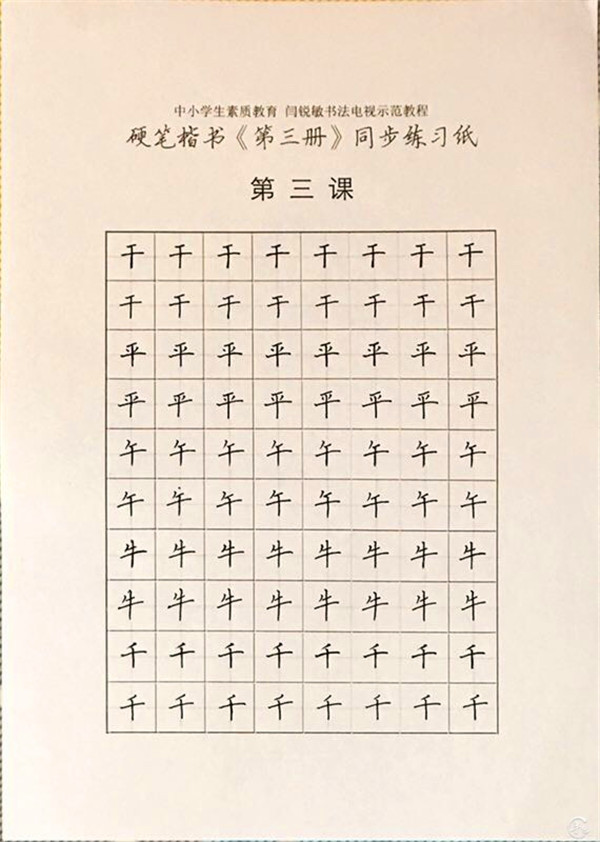 中小学生素质教育 闫锐敏书法电视示范教程
硬笔楷书《第三册》同步练习纸
第三课
干干干干干干干干
干干干干干干干干
平平平平平平平平
平平平平平平平平
午午午午午午午午
午午午午午午午午
牛牛牛牛牛牛牛牛
牛牛牛牛牛牛牛牛
千千千千千千千千
千千千千千千千千